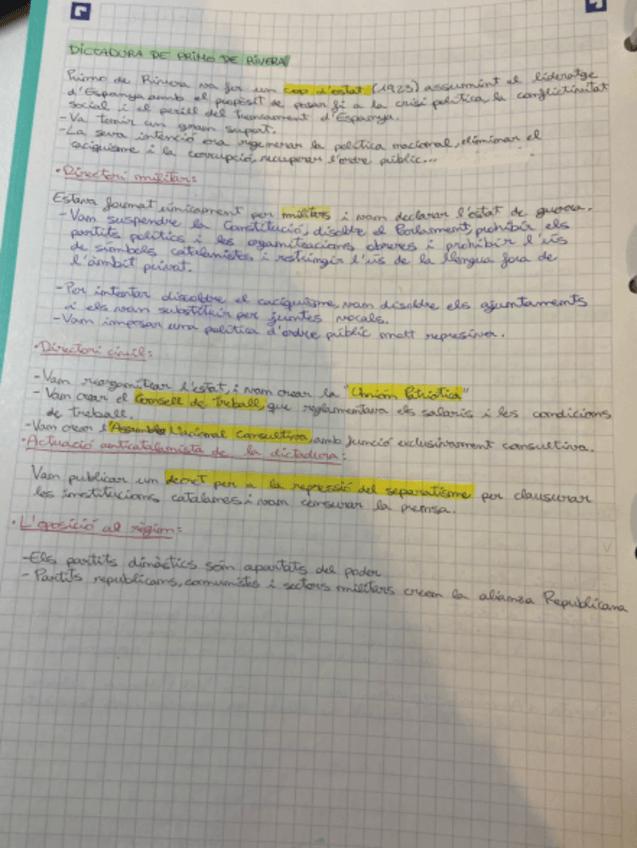 DICTADURA DE PRIMO DE RIVERA
Primo de Rivera va fer un cop d'estat (1923) assumint el lideratge
d'Espanya amb el propòsit de posar fi a la crisi política, la conflictivitat
social i el perill del trencament d'Espanya.
- Va tenir un gran suport.
- La seva intenció era regenerar la política nacional, eliminar el
caciquisme i la corrupció, recuperar l'ordre públic...
• Directori militar:
Estava format únicament per militars i vam declarar l'estat de guerra.
- Vam suspendre la Constitució, disoldre el Parlament, prohibir els
partits polítics i les organitzacions obreres i prohibir l'ús
de símbols catalanistes i restringir l'ús de la llengua fora de
l'àmbit privat.
- Per intentar disoldre el caciquisme, vam disoldre els ajuntaments
i els vam substituir per juntes vocals.
- Vam imposar una política d'ordre públic molt represiva.
• Directori civil:
- Vam reorganitzar l'estat, i vam crear la "Unión Patriótica"
- Vam crear el Consell de Treball, que reglamentava els salaris i les condicions
de treball.
- Vam crear l'Assamblea Nacional Consultiva, amb funció exclusivament consultiva.
• Actuació anticatalanista de la dictadura:
Vam publicar un decret per a la repressió del separatisme per clausurar
les institucions catalanes i vam censurar la premsa.
• L'oposició al règim:
- Els partits dinàstics són apartats del poder
- Partits republicans, comunistes i sectors militars creen la alianza Republicana